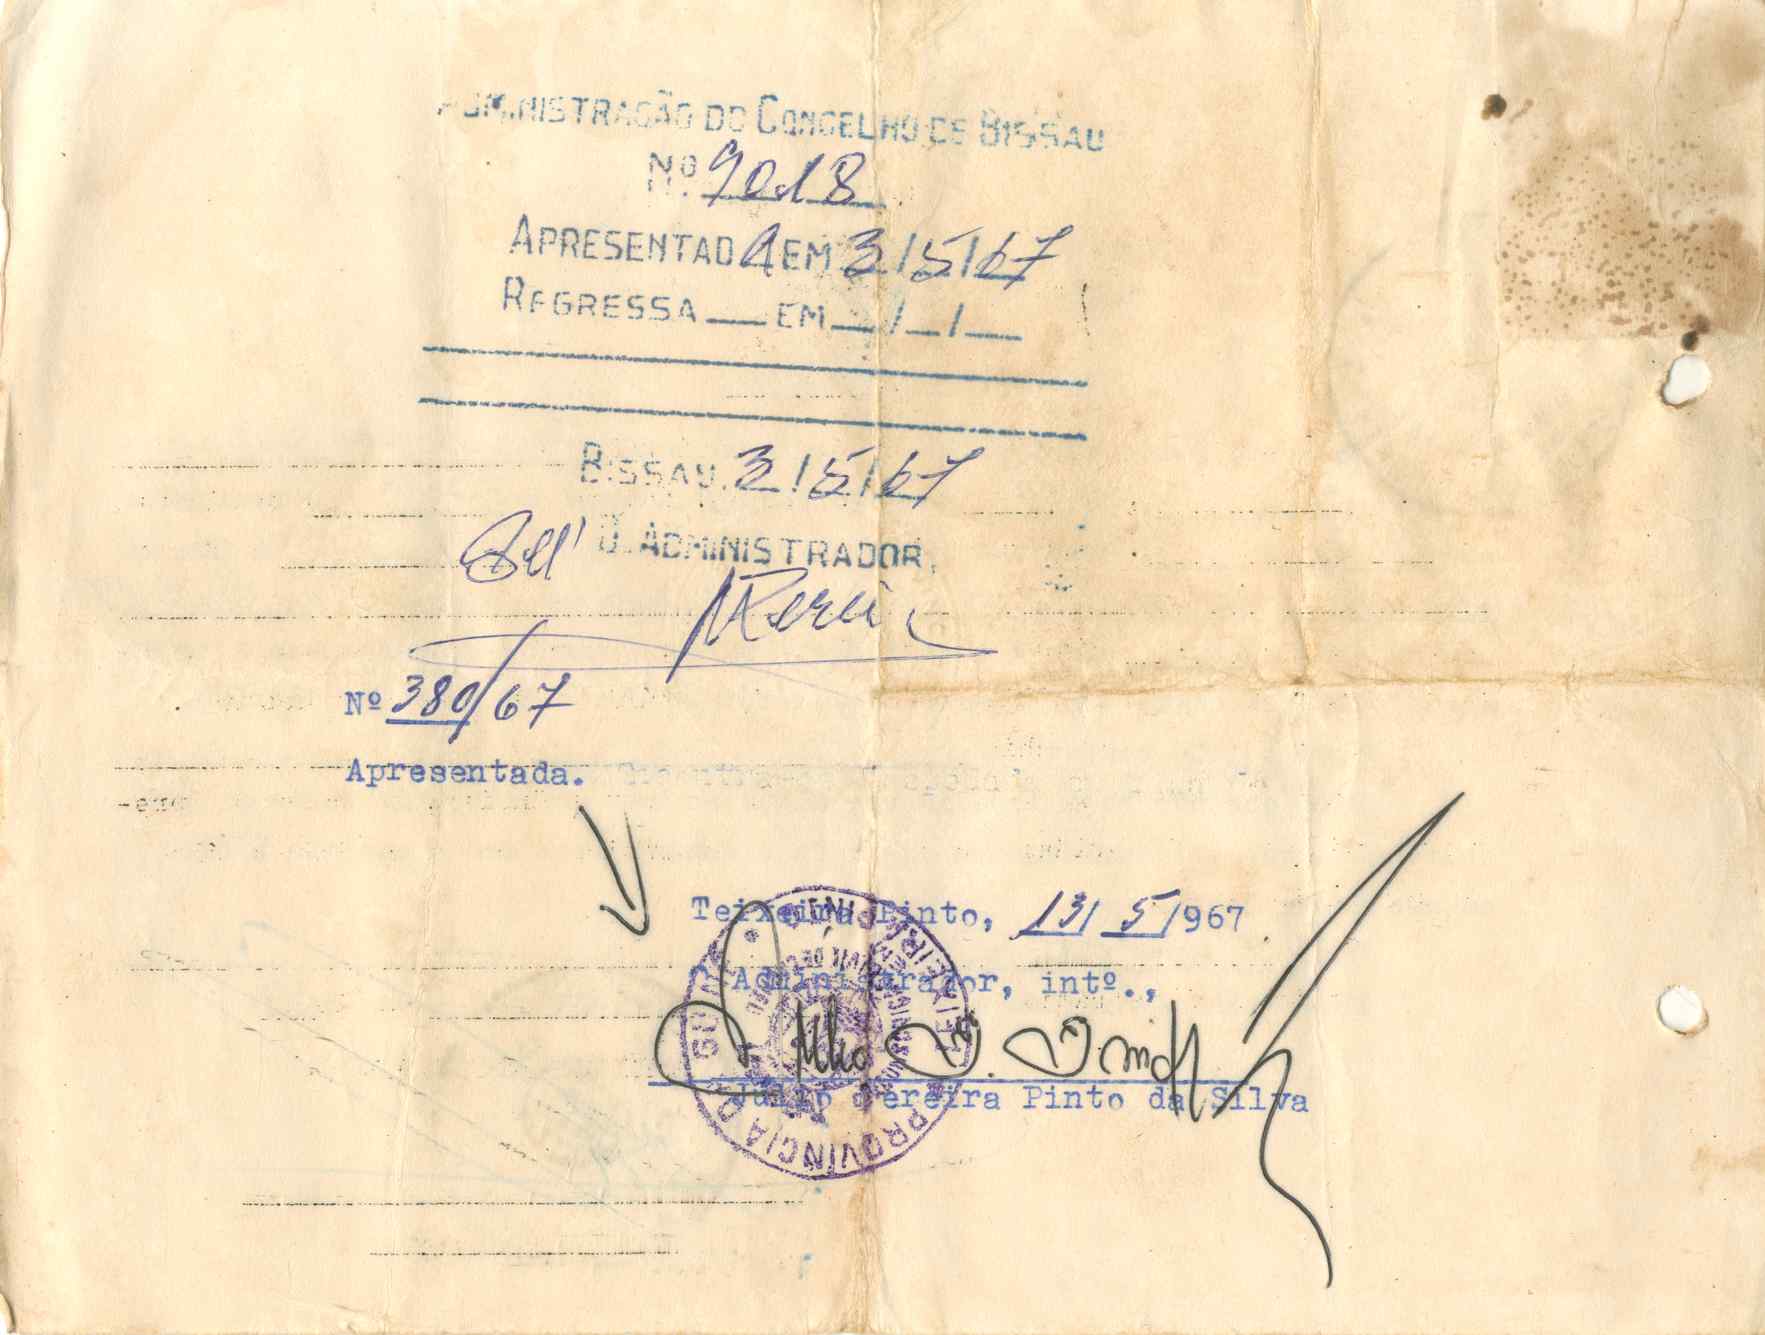 ADMINISTRAÇÃO DO CONCELHO DE BISSAU
Nº. 9018
APRESENTADA EM 3/5/67
REGRESSA ___ EM __/__/__
BISSAU, 3/5/67
O. ADMINISTRADOR,
Nº 380/67
Apresentada.
Teixeira Pinto, 13/ 5/967
O Administrador, intº.,
Julio Pereira Pinto da Silva
PROVÍNCIA DA GUINÉ